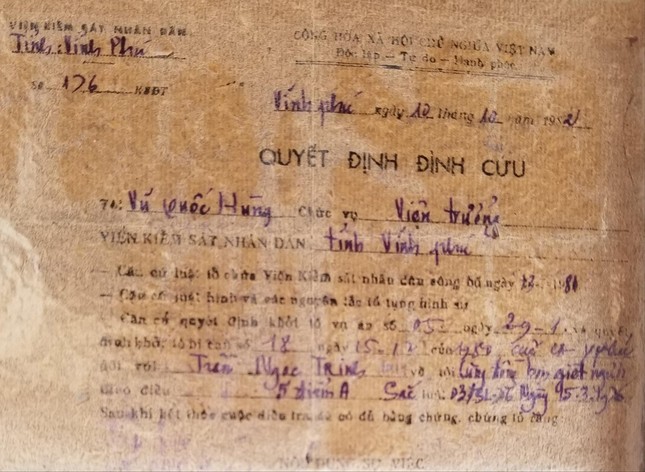 VIỆN KIỂM SÁT NHÂN DÂN
Tỉnh Vĩnh Phú
Số 176 KSĐT
CỘNG HÒA XÃ HỘI CHỦ NGHĨA VIỆT NAM
Độc lập — Tự do — Hạnh phúc
Vĩnh phú ngày 10 tháng 10 năm 198
QUYẾT ĐỊNH ĐÌNH CỨU
Vũ Quốc Hùng Chức vụ Viện trưởng
VIỆN KIỂM SÁT NHÂN DÂN tỉnh Vĩnh phú
— Căn cứ luật tổ chức Viện Kiểm sát nhân dân công bố ngày
— Căn cứ luật hình và các nguyên tắc tố tụng hình sự
Căn cứ quyết định khởi tố vụ án số 05 ngày 29-1 và quyết
định khởi tố bị can số 18 ngày 15 của
đối với Trần Ngọc Trinh về tội
theo điều 5 điểm A Sắc
Sau khi kết thúc cuộc điều tra đã có đủ bằng chứng, chứng tỏ rằng
NỘI DUNG SỰ VIỆC